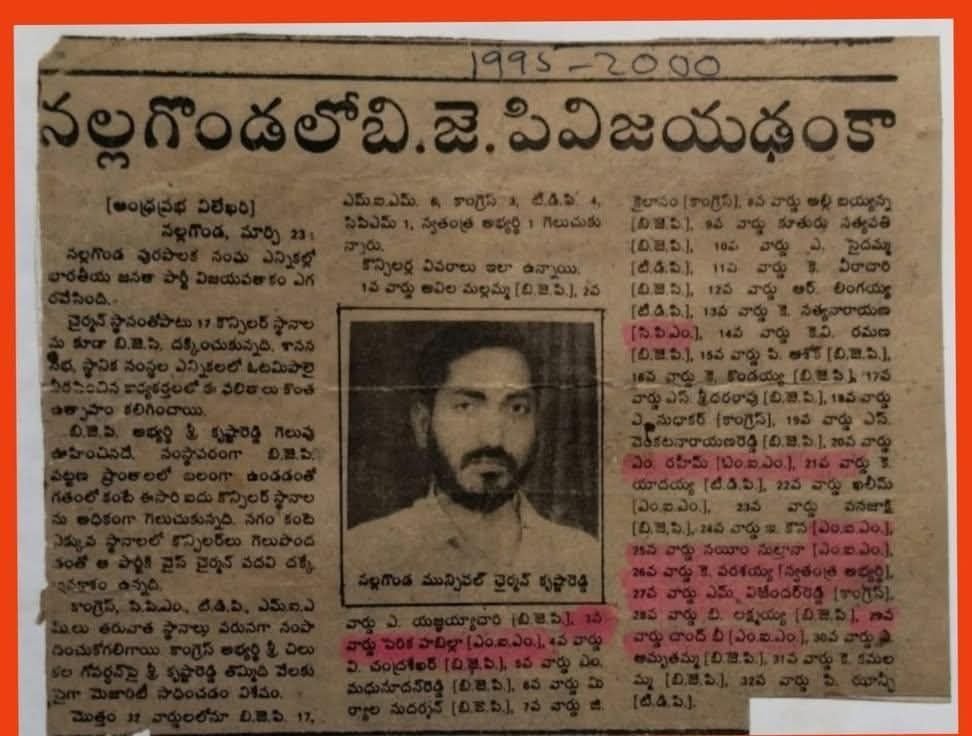 1995-2000
నల్లగొండలో బి.జె.పి విజయఢంకా
[ఆంధ్రప్రభ విలేఖరి]
నల్లగొండ, మార్చి 23:
నల్లగొండ పురపాలక సంఘ ఎన్నికల్లో
భారతీయ జనతా పార్టీ విజయపతాకం ఎగ
రవేసింది.
చైర్మన్ స్థానంతోపాటు 17 కౌన్సిలర్ స్థానాల
ను కూడా బి.జె.పి. దక్కించుకున్నది. శాసన
సభ, స్థానిక సంస్థల ఎన్నికలలో ఓటమిపాలై
నీరసించిన కార్యకర్తలలో ఈ ఫలితాలు కొంత
ఉత్సాహం కలిగించాయి.
బి.జె.పి. అభ్యర్థి శ్రీ కృష్ణారెడ్డి గెలుపు
ఊహించినదే. సంస్థాపరంగా బి.జె.పి.
పట్టణ ప్రాంతాలలో బలంగా ఉండడంతో
గతంలో కంటే ఈసారి ఐదు కౌన్సిలర్ స్థానాల
ను అధికంగా గెలుచుకున్నది. సగం కంటె
ఎక్కువ స్థానాలలో కౌన్సిలర్‌లు గెలుపొంద
డంతో ఆ పార్టీకి వైస్ చైర్మన్ పదవి దక్కే
అవకాశం ఉన్నది.
కాంగ్రెస్, సి.పి.ఎం., టి.డి.పి., ఎమ్.ఐ.ఎ
మ్.లు తరువాత స్థానాలు వరుసగా సంపా
దించుకోగలిగాయి. కాంగ్రెస్ అభ్యర్థి శ్రీ చిలు
కల గోవర్ధన్‌పై శ్రీ కృష్ణారెడ్డి తొమ్మిది వేలకు
పైగా మెజారిటీ సాధించడం విశేషం.
మొత్తం 32 వార్డులలోనూ బి.జె.పి. 17,
ఎమ్.ఐ.ఎమ్. 6, కాంగ్రెస్ 3, టి.డి.పి 4,
సిపిఎమ్ 1, స్వతంత్ర అభ్యర్థి 1 గెలుచుకు
న్నారు.
కౌన్సిలర్ల వివరాలు ఇలా ఉన్నాయి.
1వ వార్డు అవిల మల్లమ్మ [బి.జె.పి.], 2వ
నల్లగొండ మున్సిపల్ ఛైర్మన్ కృష్ణారెడ్డి
వార్డు ఎ. యజ్ఞయ్యాచారి [బి.జె.పి.], 3వ
వార్డు పెరిక హబిల్లా [ఎం.ఐ.ఎం.], 4వ వార్డు
వి. చంద్రశేఖర్ [బి.జె.పి.], 5వ వార్డు ఎం.
మధుసూదన్‌రెడ్డి [బి.జె.పి.], 6వ వార్డు మి
ర్యాల సుదర్శన్ [బి.జె.పి.], 7వ వార్డు జి.
కైలాసం [కాంగ్రెస్], 8వ వార్డు అల్లి బయ్యన్న
[బి.జె.పి.], 9వ వార్డు కూతురు సత్యవతి
[బి.జె.పి.], 10వ వార్డు ఎ. సైదమ్మ
[టి.డి.పి.], 11వ వార్డు కె. వీరాచారి
[బి.జె.పి.], 12వ వార్డు ఆర్. లింగయ్య
[టి.డి.పి.], 13వ వార్డు కె. సత్యనారాయణ
[సి.పి.ఎం.], 14వ వార్డు కె.వి. రమణ
[బి.జె.పి.], 15వ వార్డు పి. అశోక్ [బి.జె.పి.],
16వ వార్డు కె. కొండయ్య [బి.జె.పి.], 17వ
వార్డు ఎస్. శ్రీధరరావు [బి.జె.పి.], 18వ వార్డు
ఎ. సుధాకర్ [కాంగ్రెస్], 19వ వార్డు ఎస్.
వెంకటనారాయణరెడ్డి [బి.జె.పి.], 20వ వార్డు
ఎం. రహీమ్ [ఎం.ఐ.ఎం.], 21వ వార్డు కె.
యాదయ్య [టి.డి.పి.], 22వ వార్డు ఖలీమ్
[ఎం.ఐ.ఎం.], 23వ వార్డు వనజాక్షి
[బి.జె.పి.], 24వ వార్డు ఇ. కౌస [ఎం.ఐ.ఎం.],
25వ వార్డు నయీం సుల్తానా [ఎం.ఐ.ఎం.],
26వ వార్డు కె. పరశయ్య [స్వతంత్ర అభ్యర్థి],
27వ వార్డు ఎమ్. విజేందర్‌రెడ్డి [కాంగ్రెస్],
28వ వార్డు బి. లక్ష్మయ్య [బి.జె.పి.], 29వ
వార్డు చాంద్ బీ [ఎం.ఐ.ఎం.], 30వ వార్డు
అమృతమ్మ [బి.జె.పి.], 31వ వార్డు కె. కమల
మ్మ [బి.జె.పి.], 32వ వార్డు పి. ఝాన్సీ
[టి.డి.పి.].